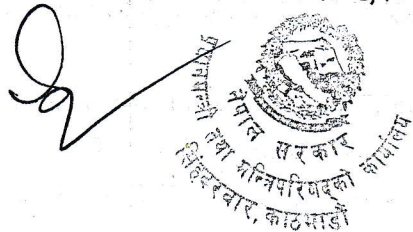 नेपाल सरकार
प्रधानमन्त्री तथा मन्त्रिपरिषद्को कार्यालय
सिंहदरबार, काठमाडौं